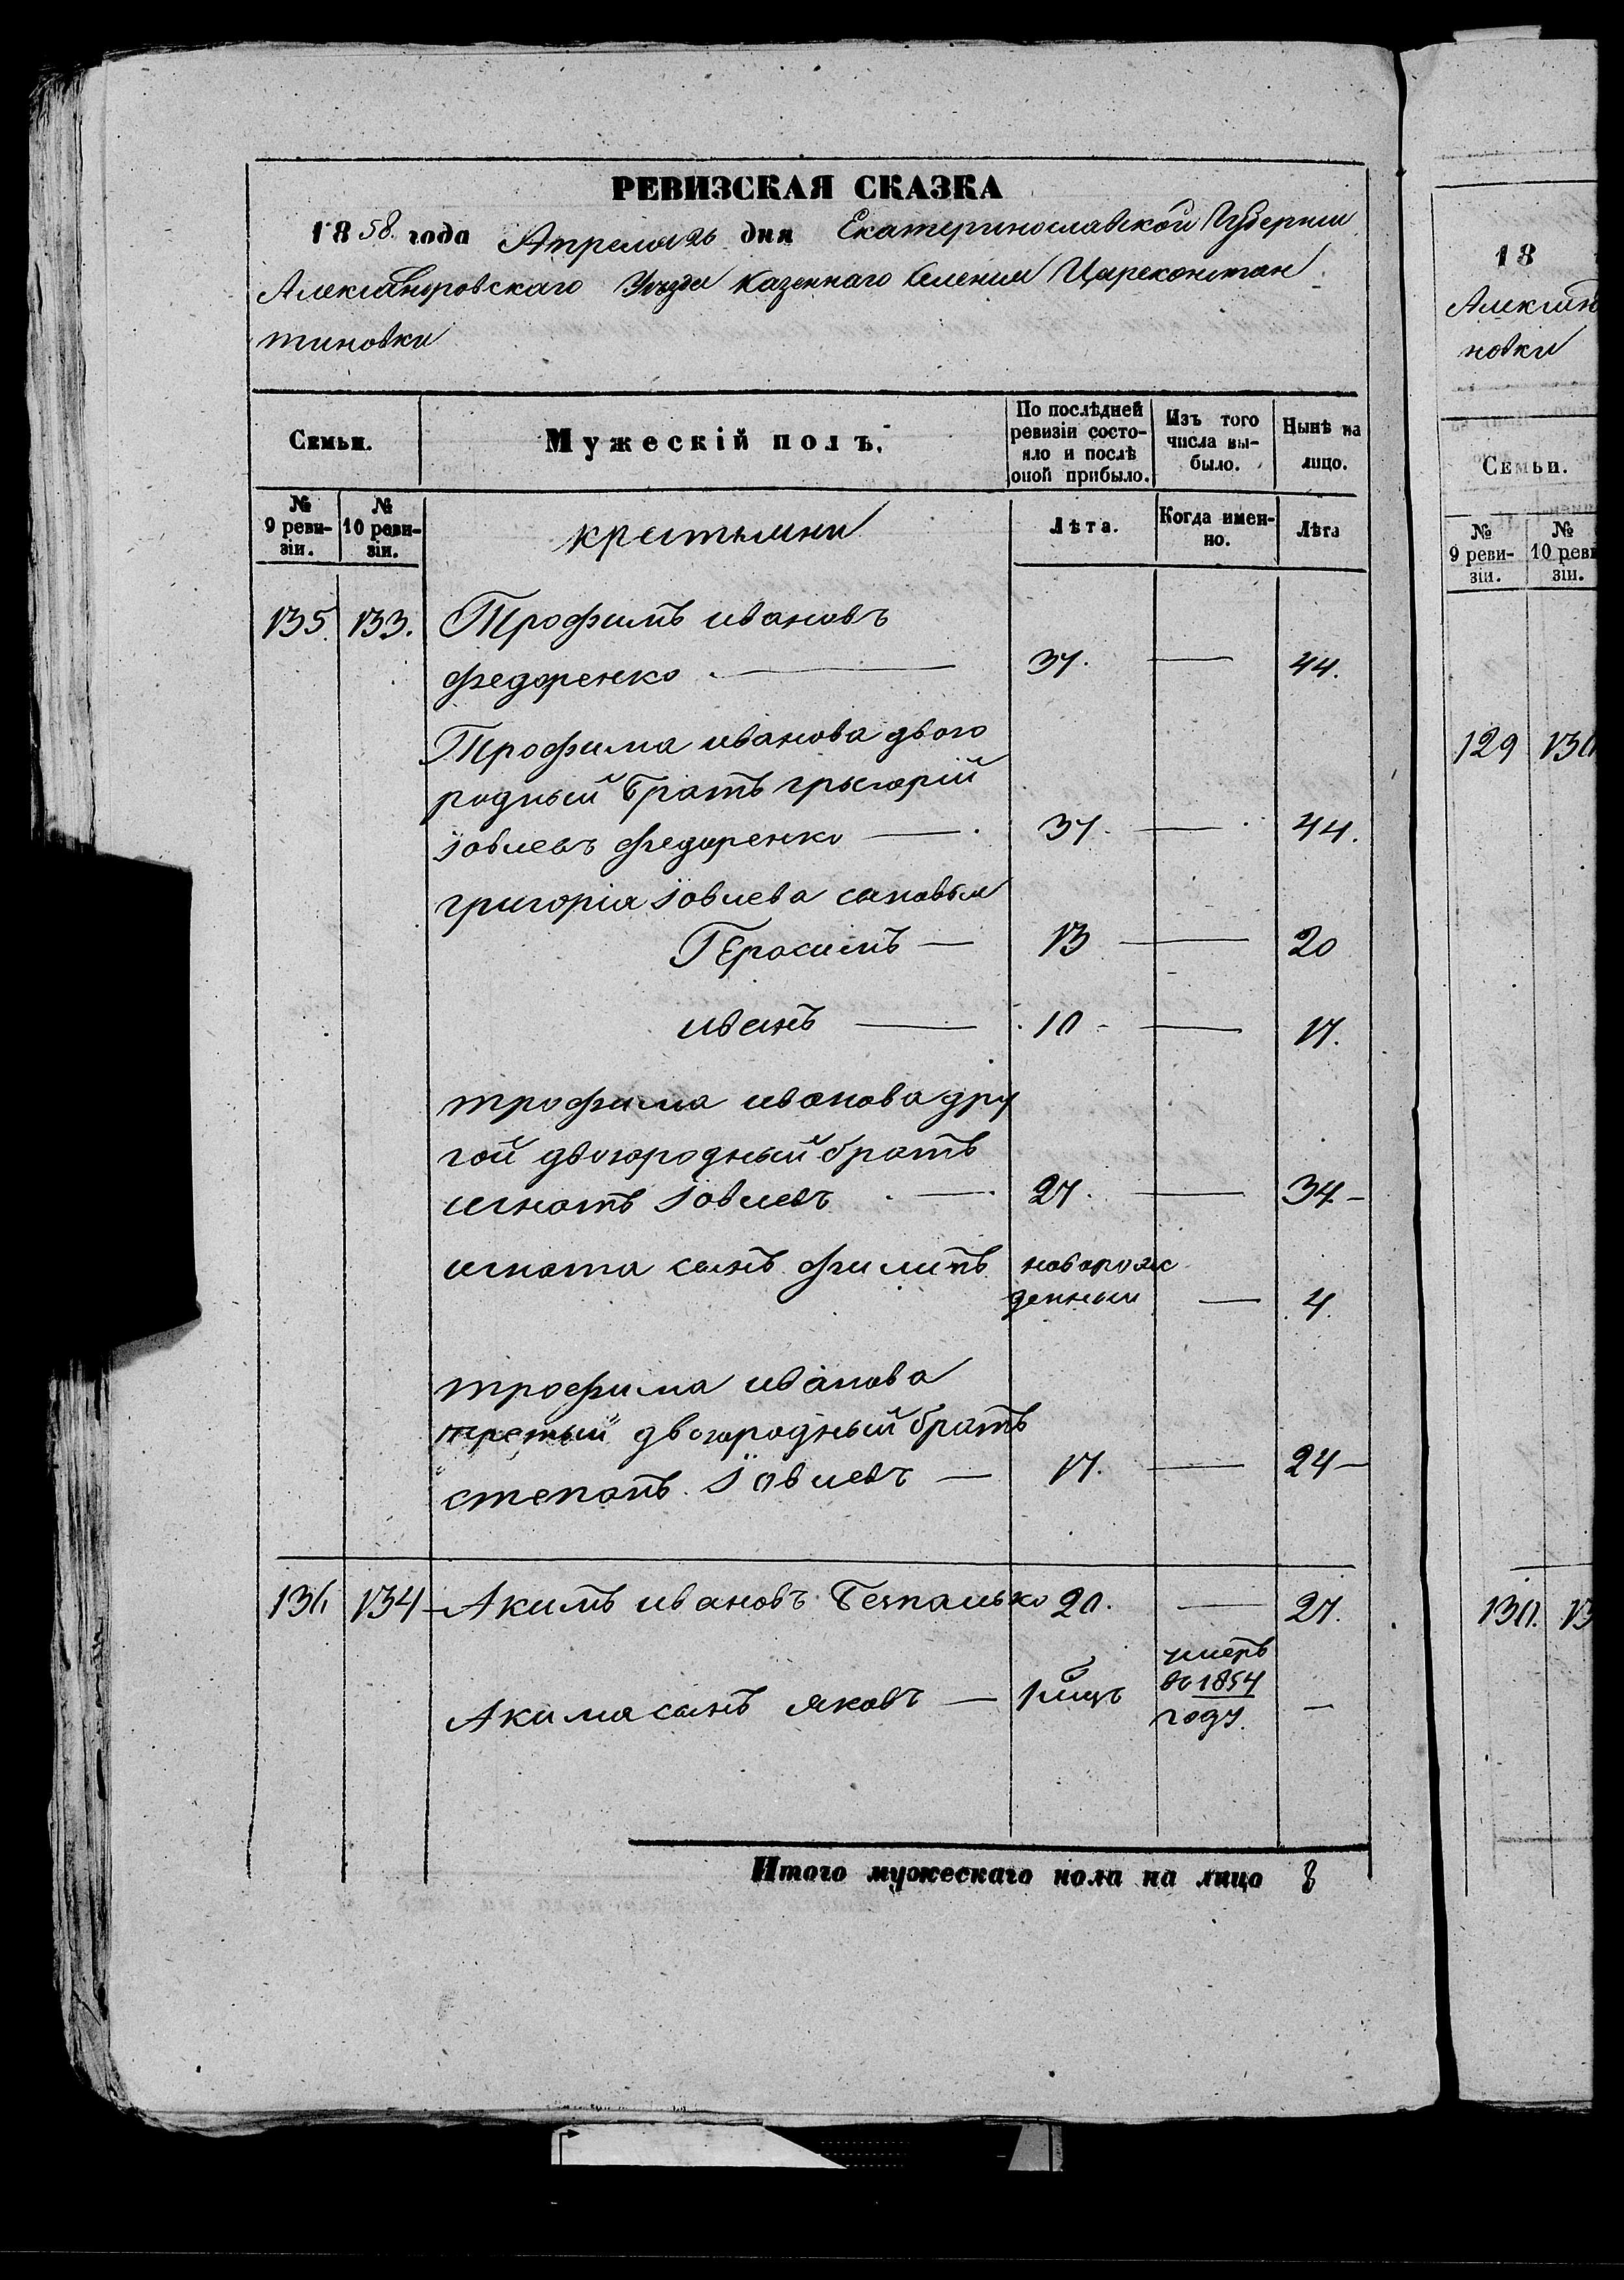 РЕВИЗСКАЯ СКАЗКА
1858 года Апреля 26 дня Екатеринославской Губернии
Александровскаго Уезда Казеннаго Селения Цареконстан
тиновки
Семьи. Мужескій полъ. По послѣдней ревизіи состояло и послѣ оной прибыло. Изъ того числа выбыло. Нынѣ на лицо.
№ 9 ревизіи. № 10 ревизіи. крестьяни Лѣта. Когда именно. Лѣта
135. 133. Трофимъ ивановъ
федоренко . — 37. — 44.
Трофима иванова двою
родный братъ григорій
Іовлевъ федоренко — 37. — 44.
григорія Іовлева сыновья
Герасимъ — 13 — 20
иванъ — 10 — 17.
трофима иванова дру
гой двоюродный братъ
игнатъ Іовлевъ — 27. — 34 —
игната сынъ филипъ новорож
денный — 4.
трофима иванова
третый двоюродный братъ
степанъ Іовлевъ — 17. — 24 —
136 134 Акимъ ивановъ 20. — 27.
умеръ
Акима сынъ яковъ — 1 мцъ во 1854 —
году.
Итого мужескаго пола на лицо 8
18
Алексан
новки
Семьи.
№ 9 ревизіи. № 10 реви зіи.
129
130. 13